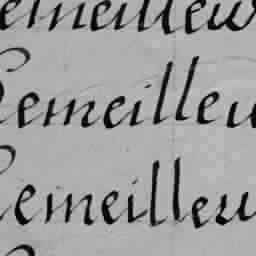 emeilleu
Cemeilleu
Cemeilleu